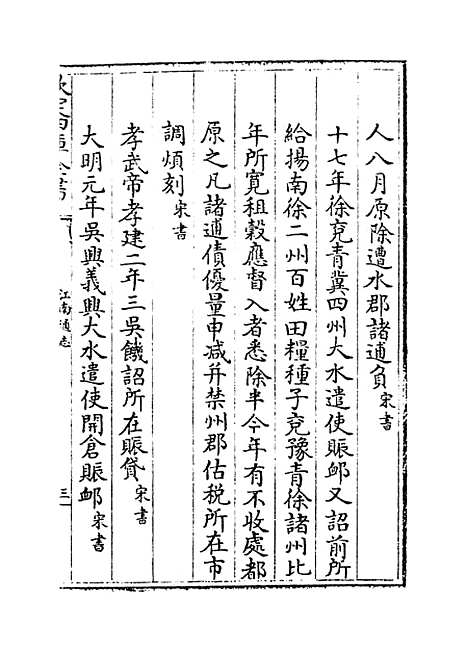 人八月原除遭水郡諸逋負宋書
十七年徐兗青冀四州大水遣使賑䘏又詔前所
給揚南徐二州百姓田糧種子兗豫青徐諸州比
年所寛租穀應督入者悉除半今年有不收處都
原之凡諸逋債優量申减并禁州郡估税所在市
調煩刻宋書
孝武帝孝建二年三吳饑詔所在賑貸宋書
大明元年吳興義興大水遣使開倉賑䘏宋書
江南通志
三